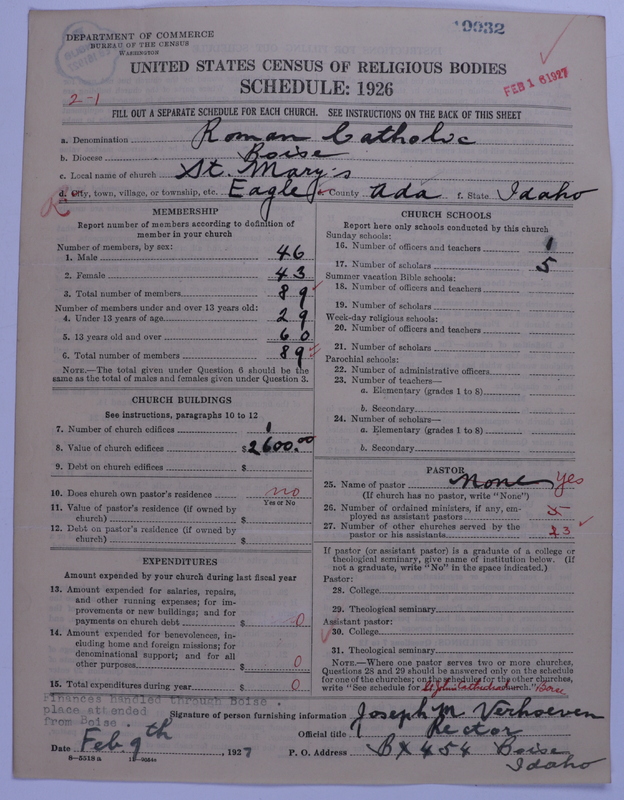 DEPARTMENT OF COMMERCE
BUREAU OF THE CENSUS
WASHINGTON
19932
UNITED STATES CENSUS OF RELIGIOUS BODIES
SCHEDULE: 1926
FEB 16 1927
2-1
FILL OUT A SEPARATE SCHEDULE FOR EACH CHURCH. SEE INSTRUCTIONS ON THE BACK OF THIS SHEET
a. Denomination Roman Catholic
b. Diocese Boise
c. Local name of church St. Mary's
d. City, town, village, or township, etc. Eagle e. County Ada f. State Idaho
R
MEMBERSHIP
Report number of members according to definition of
member in your church
Number of members, by sex:
1. Male 46
2. Female 43
3. Total number of members 89
Number of members under and over 13 years old:
4. Under 13 years of age 29
5. 13 years old and over 60
6. Total number of members 89
NOTE.—The total given under Question 6 should be the
same as the total of males and females given under Question 3.
CHURCH BUILDINGS
See instructions, paragraphs 10 to 12
7. Number of church edifices 1
8. Value of church edifices $2600.00
9. Debt on church edifices $
10. Does church own pastor's residence no
Yes or No
11. Value of pastor's residence (if owned by
church) $
12. Debt on pastor's residence (if owned by
church) $
EXPENDITURES
Amount expended by your church during last fiscal year
13. Amount expended for salaries, repairs,
and other running expenses; for im-
provements or new buildings; and for
payments on church debt $ 0
14. Amount expended for benevolences, in-
cluding home and foreign missions; for
denominational support; and for all
other purposes $ 0
15. Total expenditures during year $ 0
CHURCH SCHOOLS
Report here only schools conducted by this church
Sunday schools:
16. Number of officers and teachers 1
17. Number of scholars 5
Summer vacation Bible schools:
18. Number of officers and teachers
19. Number of scholars
Week-day religious schools:
20. Number of officers and teachers
21. Number of scholars
Parochial schools:
22. Number of administrative officers
23. Number of teachers—
a. Elementary (grades 1 to 8)
b. Secondary
24. Number of scholars—
a. Elementary (grades 1 to 8)
b. Secondary
PASTOR
25. Name of pastor None yes
(If church has no pastor, write "None")
26. Number of ordained ministers, if any, em-
ployed as assistant pastors
27. Number of other churches served by the
pastor or his assistants 3
If pastor (or assistant pastor) is a graduate of a college or
theological seminary, give name of institution below. (If
not a graduate, write "No" in the space indicated.)
Pastor:
28. College
29. Theological seminary
Assistant pastor:
30. College
31. Theological seminary
NOTE.—Where one pastor serves two or more churches,
Questions 28 and 29 should be answered only on the schedule
for one of the churches; on the schedules for the other churches,
write "See schedule for St John Cathedral church." Boise
Finances handled through Boise .
place attended
from Boise .
Signature of person furnishing information Joseph M Verhoeven
Official title Rector
Date Feb. 9th, 1927 P. O. Address BX 454 Boise
Idaho
8-5518a